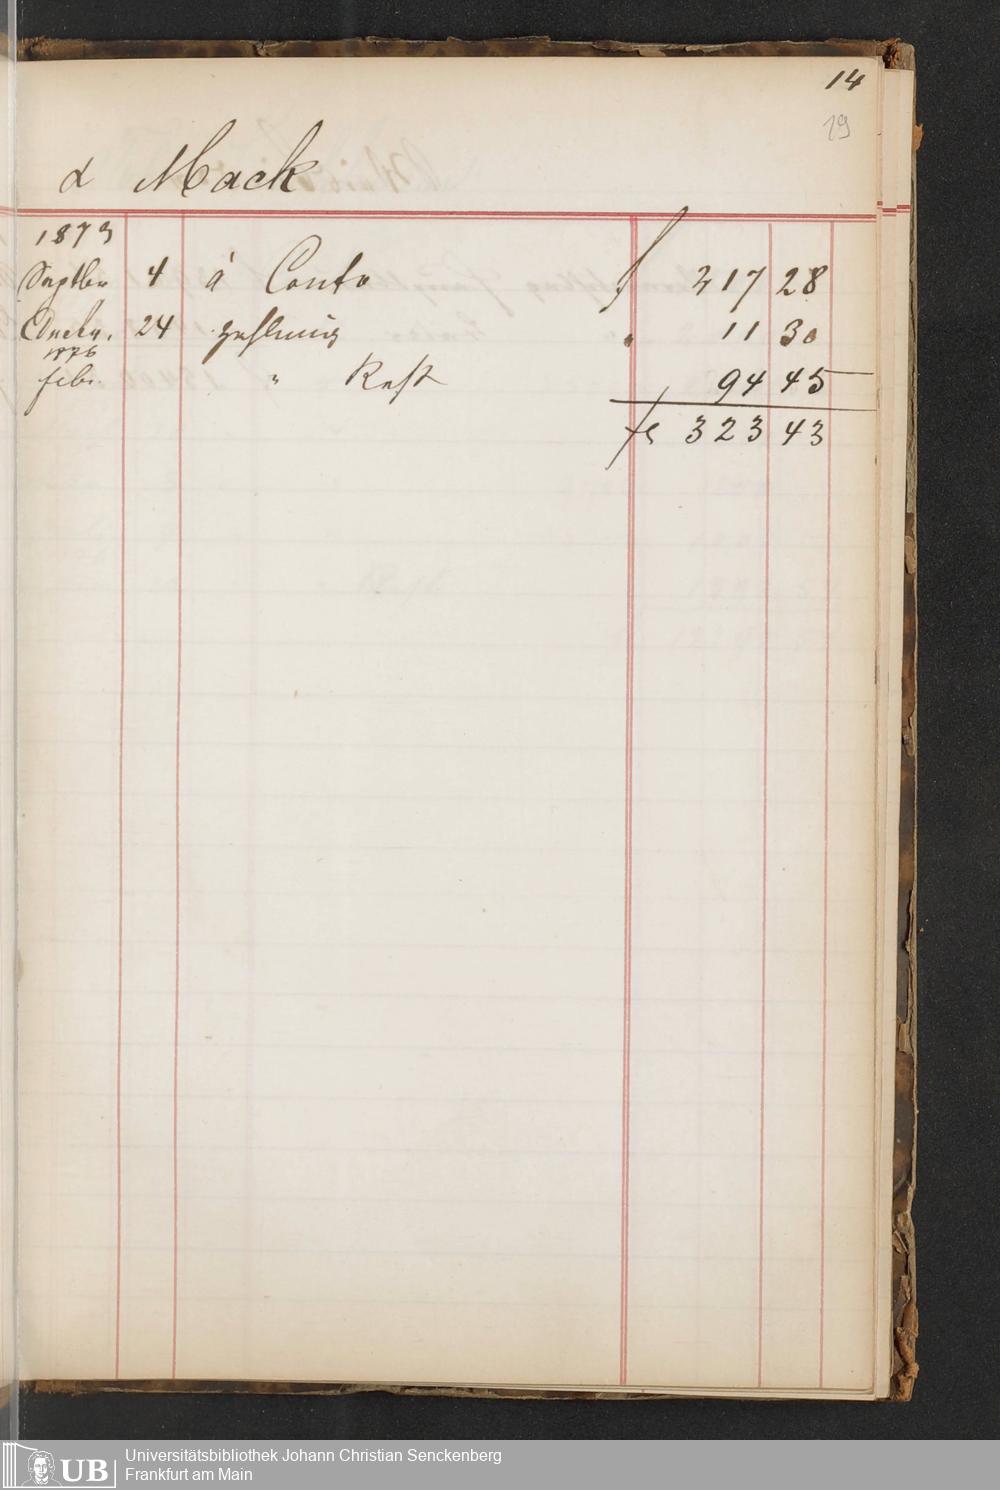 14
19
& Mack
1873
Septbr 4 á Conto f 217 28
24 Zahlung " 11 30
1876
Febr. " Rest 94 45
fl 323 43
Universitätsbibliothek Johann Christian Senckenberg
Frankfurt am Main
UB